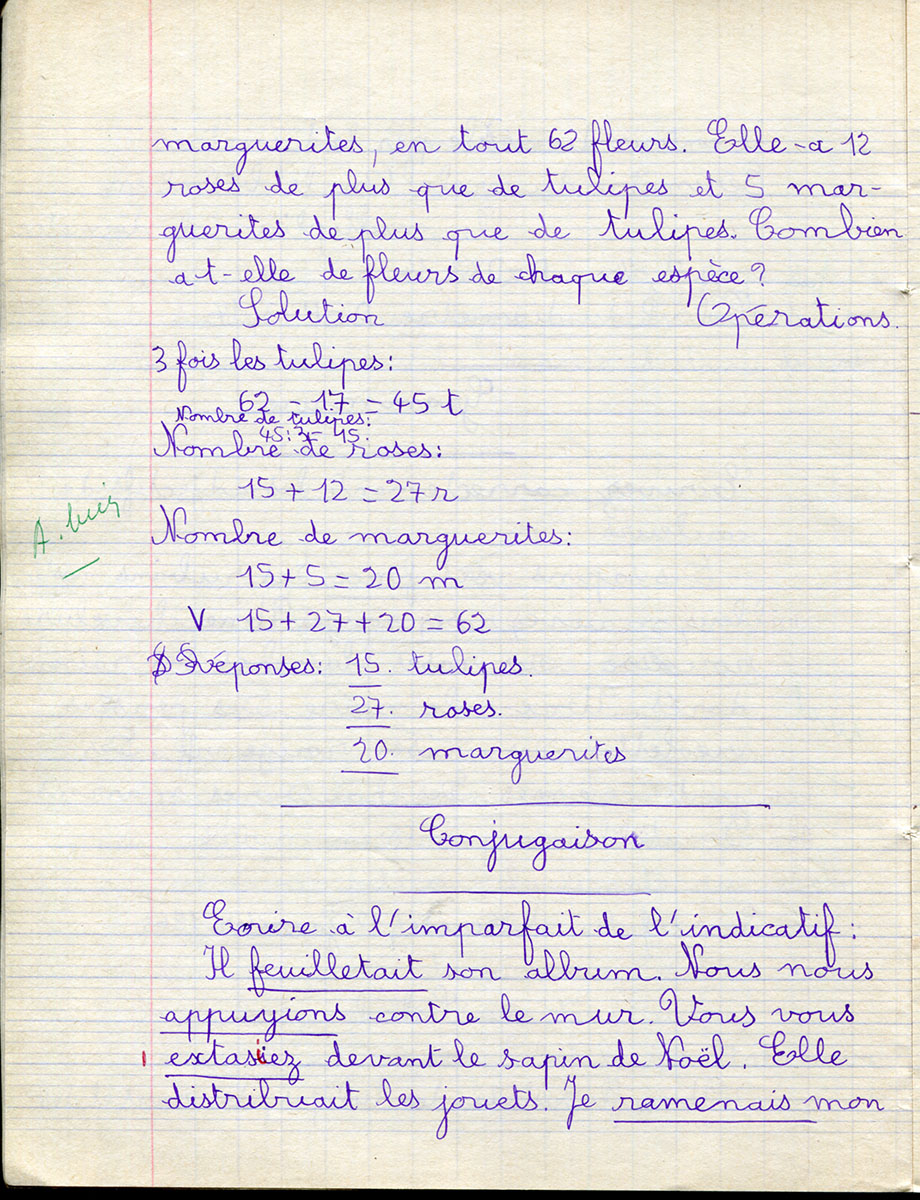 marguerites, en tout 62 fleurs. Elle-a 12
roses de plus que de tulipes et 5 mar-
guerites de plus que de tulipes. Combien
a t-elle de fleurs de chaque espèce?
Solution Opérations.
3 fois les tulipes:
62 - 17 = 45 t
Nombre de tulipes:
45:3= 15.
Nombre de roses:
15 + 12 = 27 r
Nombre de marguerites:
15 + 5 = 20 m
V 15 + 27 + 20 = 62
Réponses: 15. tulipes.
27. roses.
20. marguerites
Conjugaison
Ecrire à l'imparfait de l'indicatif:
Il feuilletait son album. Nous nous
appuyions contre le mur. Vous vous
1 extasiiez devant le sapin de Noël. Elle
distribuait les jouets. Je ramenais mon